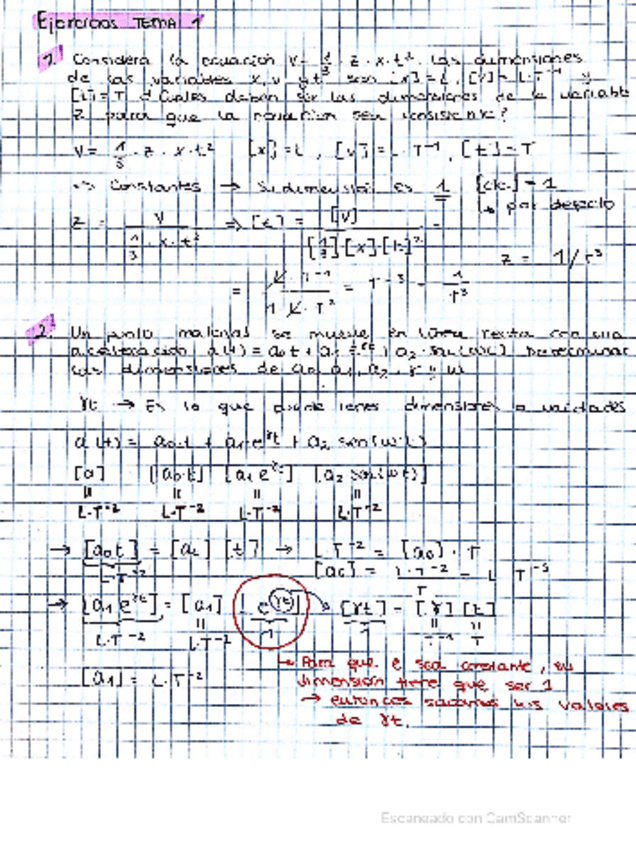 Ejercicios TEMA 1
1. Considera la ecuación v = 1/3 · z · x · t². Las dimensiones
de las variables x, v y t son [x] = L, [v] = L·T⁻¹ y
[t] = T ¿Cuáles deben ser las dimensiones de la variable
z para que la ecuación sea consistente?
v = 1/3 · z · x · t² [x] = L, [v] = L·T⁻¹, [t] = T
Constantes → Su dimensión es 1 [cte.] = 1
↳ por defecto
z = v / (1/3 · x · t²) ⇒ [z] = [v] / ([1/3][x][t]²) =
z = 1/T³
= L·T⁻¹ / (1·L·T²) = T⁻³ = 1/T³
2. Un punto material se mueve en línea recta con una
aceleración a(t) = a₀t + a₁e^γt + a₂·sen(ωt). Determinar
las dimensiones de a₀, a₁, a₂, γ y ω
γt → Es lo que puede tener dimensiones o unidades
a(t) = a₀·t + a₁e^γt + a₂ sen(ω·t)
[a] [a₀·t] [a₁e^γt] [a₂ sen(ωt)]
= = = =
L·T⁻² L·T⁻² L·T⁻² L·T⁻²
→ [a₀t] = [a₀] [t] → L·T⁻² = [a₀]·T
L·T⁻² [a₀] = L·T⁻² / T = L·T⁻³
→ [a₁e^γt] = [a₁] [e^γt] → [γt] = [γ] [t]
L·T⁻² L·T⁻² 1 1 T⁻¹ T
[a₁] = L·T⁻²
↳ Para que e sea constante, su
dimensión tiene que ser 1
→ entonces sacamos los valores
de γt.
Escaneado con CamScanner